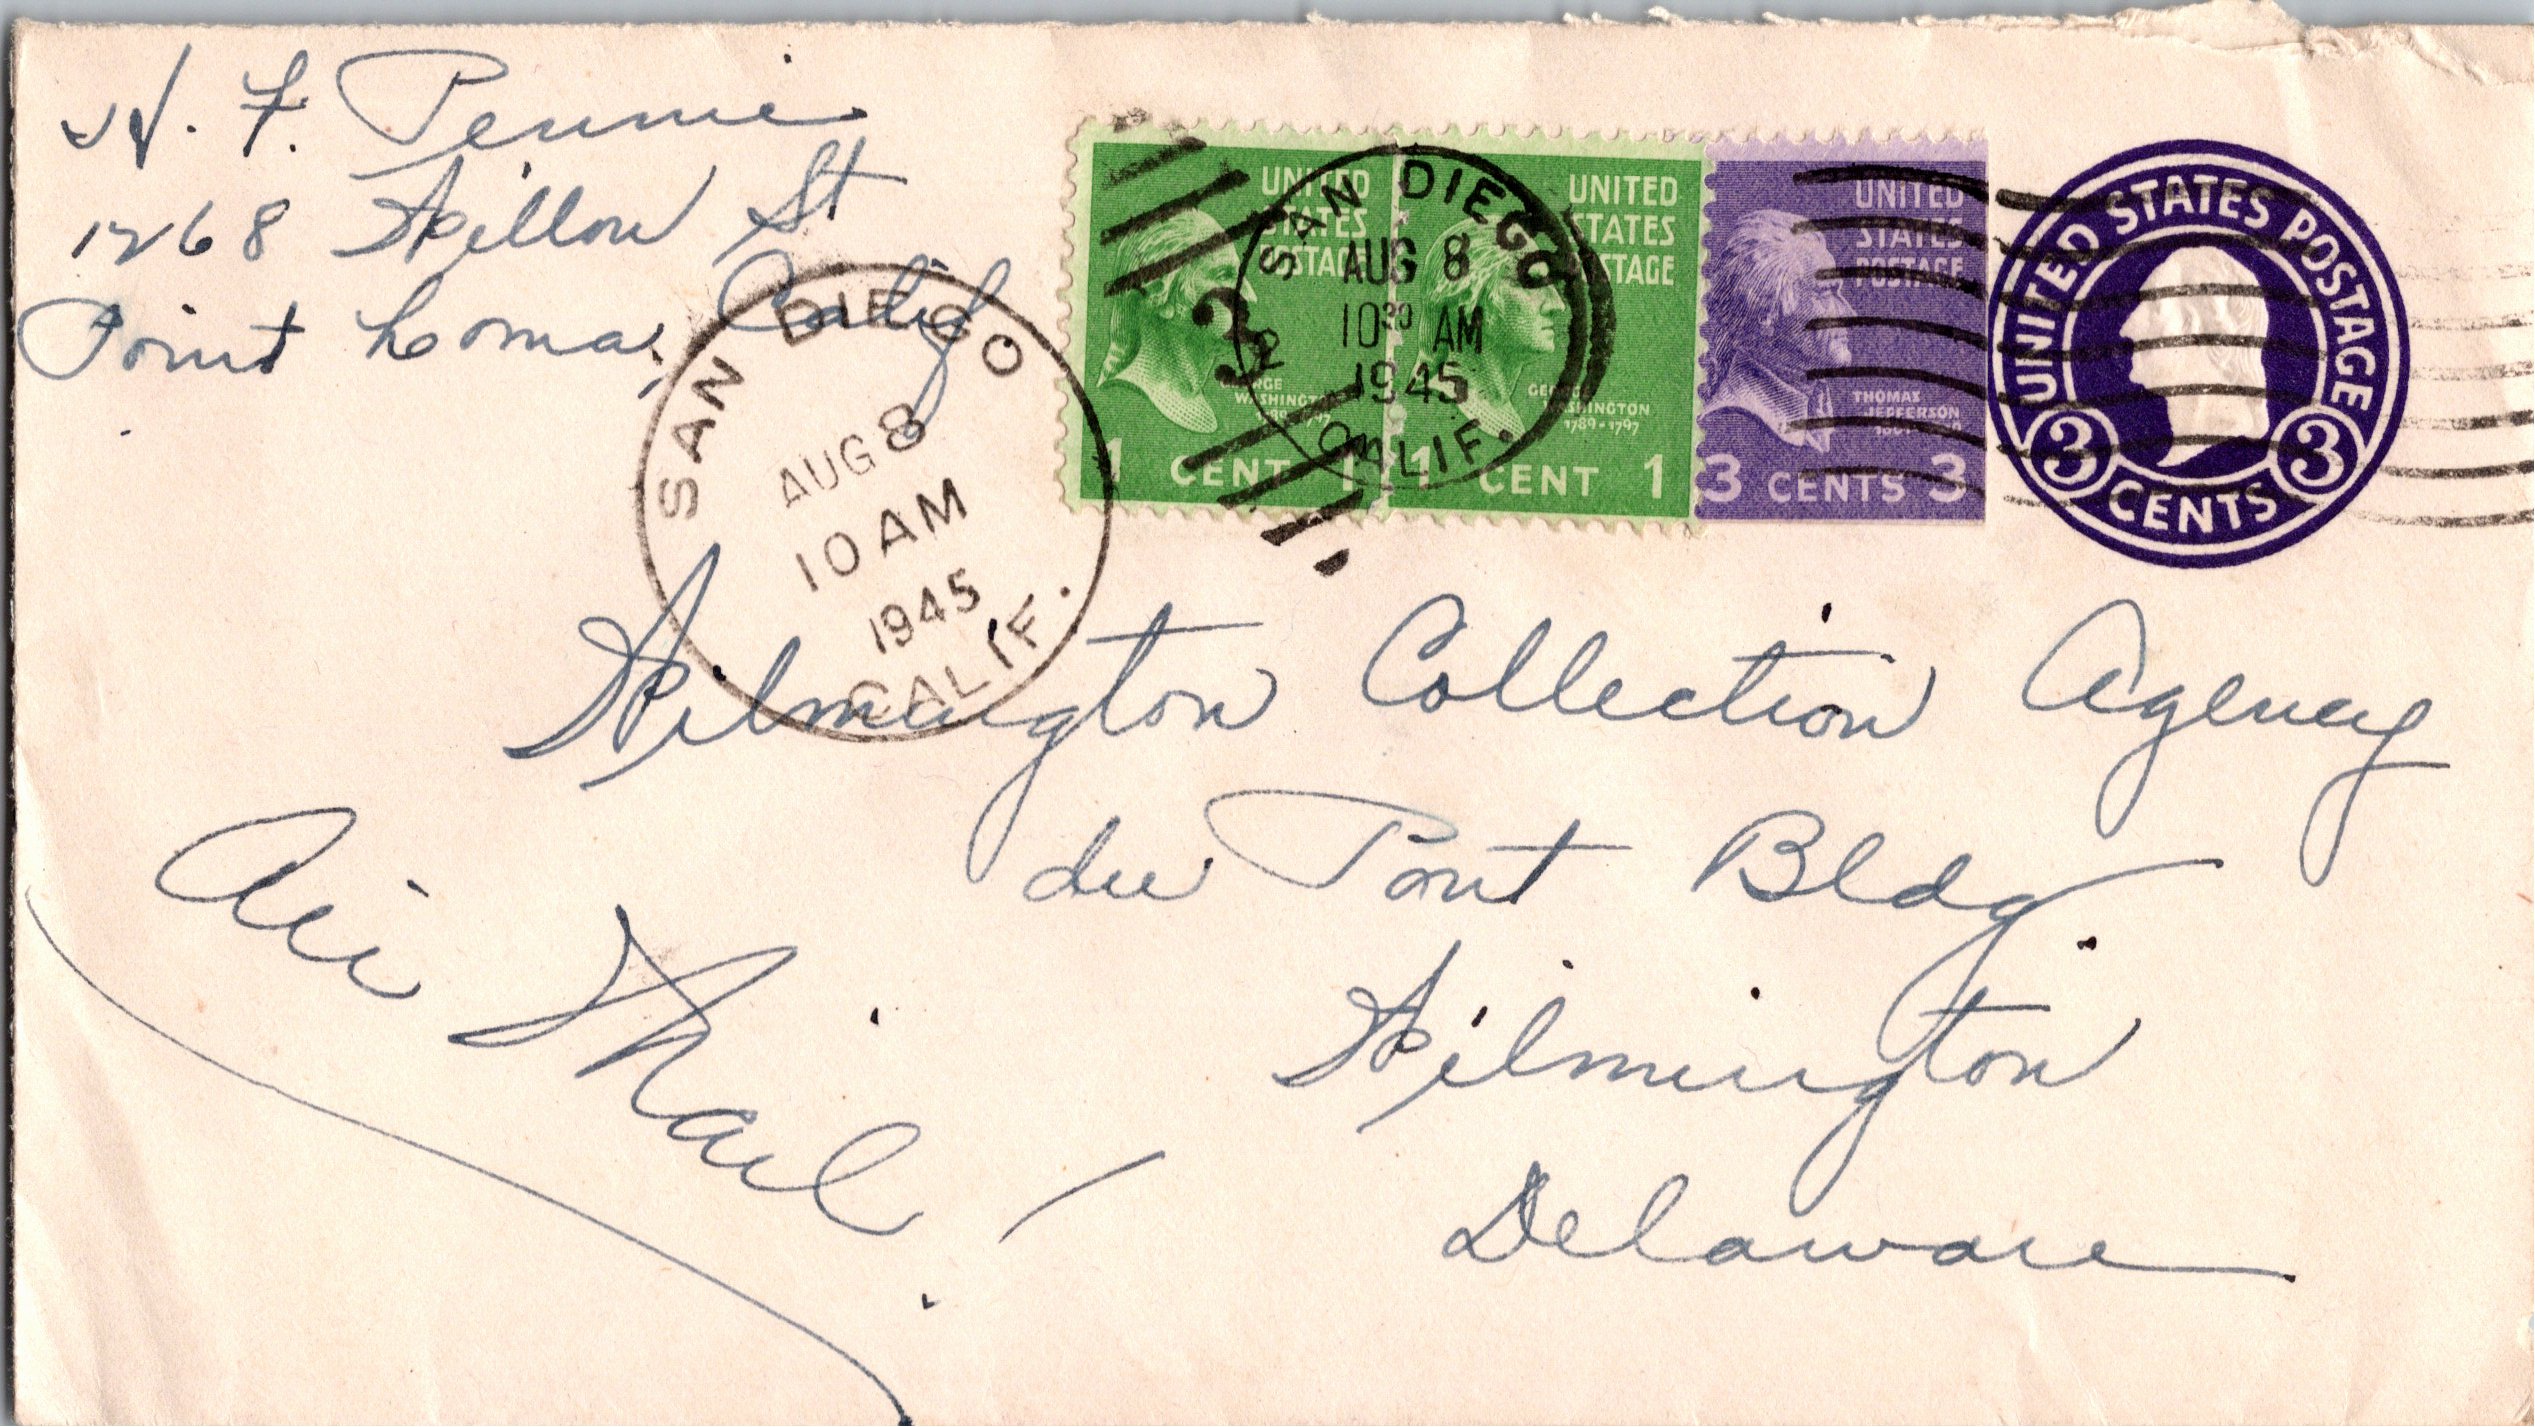 W. F. Pennie
1268 Willow St
Point Loma, Calif
SAN DIEGO
AUG 8
10 AM
1945
CALIF.
UNITED
STATES
POSTAGE
WASHINGTON
1 CENT 1
SAN DIEGO
AUG 8
10 30 AM
1945
CALIF.
3
UNITED
STATES
POSTAGE
GEORGE
WASHINGTON
1789-1797
1 CENT 1
UNITED
STATES
POSTAGE
THOMAS
JEFFERSON
3 CENTS 3
UNITED STATES POSTAGE
3 CENTS 3
Wilmington Collection Agency
du Pont Bldg.
Wilmington
Delaware
Air Mail